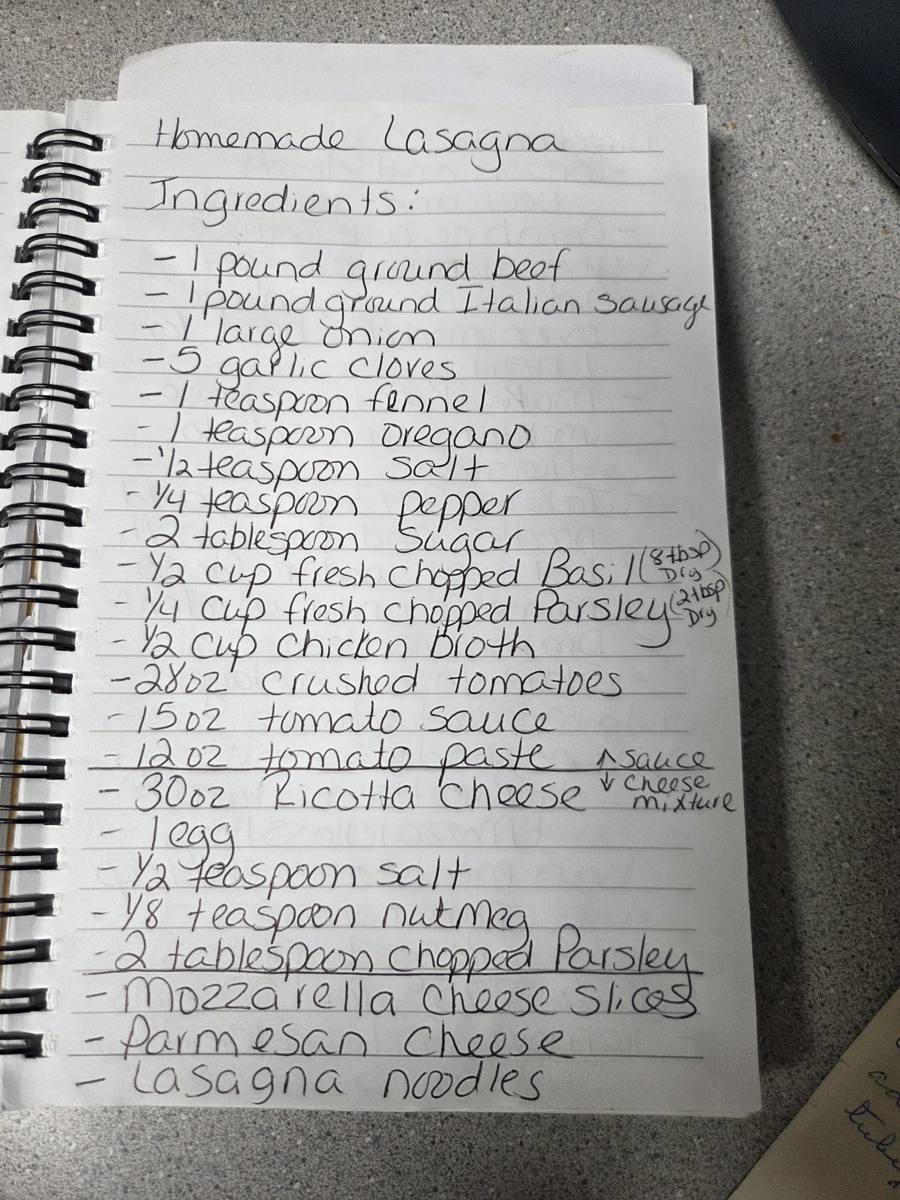 Homemade Lasagna
Ingredients:
- 1 pound ground beef
- 1 pound ground Italian Sausage
- 1 large onion
- 5 garlic cloves
- 1 teaspoon fennel
- 1 teaspoon oregano
- 1/2 teaspoon salt
- 1/4 teaspoon pepper
- 2 tablespoon Sugar
- 1/2 cup fresh chopped Basil (8 tbsp Dry)
- 1/4 cup fresh chopped Parsley (2 tbsp Dry)
- 1/2 cup chicken broth
- 28oz crushed tomatoes
- 15oz tomato sauce
- 12oz tomato paste ↑ sauce
- 30oz Ricotta cheese ↓ cheese mixture
- 1 egg
- 1/2 teaspoon salt
- 1/8 teaspoon nutmeg
- 2 tablespoon chopped Parsley
- Mozzarella cheese slices
- Parmesan cheese
- Lasagna noodles